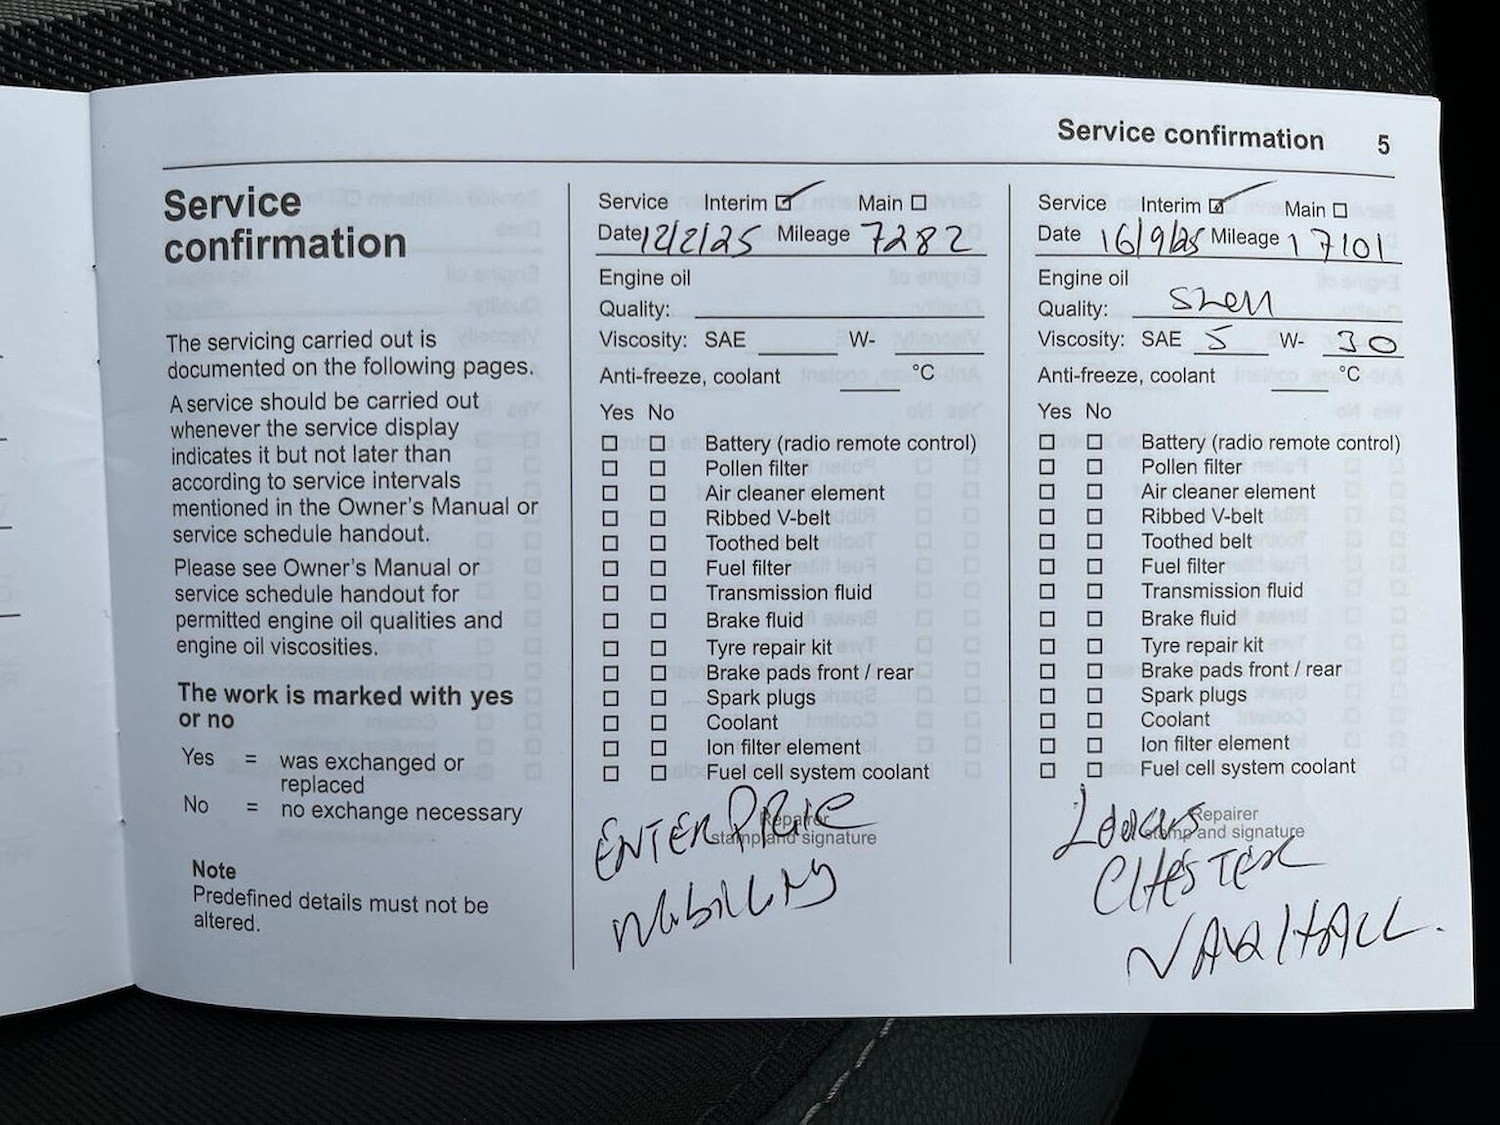 Service confirmation 5
Service
confirmation
The servicing carried out is
documented on the following pages.
A service should be carried out
whenever the service display
indicates it but not later than
according to service intervals
mentioned in the Owner's Manual or
service schedule handout.
Please see Owner's Manual or
service schedule handout for
permitted engine oil qualities and
engine oil viscosities.
The work is marked with yes
or no
Yes = was exchanged or
replaced
No = no exchange necessary
Note
Predefined details must not be
altered.
Service Interim ☑ Main ☐
Date 12/2/25 Mileage 7282
Engine oil
Quality:
Viscosity: SAE W-
Anti-freeze, coolant °C
Yes No
☐ ☐ Battery (radio remote control)
☐ ☐ Pollen filter
☐ ☐ Air cleaner element
☐ ☐ Ribbed V-belt
☐ ☐ Toothed belt
☐ ☐ Fuel filter
☐ ☐ Transmission fluid
☐ ☐ Brake fluid
☐ ☐ Tyre repair kit
☐ ☐ Brake pads front / rear
☐ ☐ Spark plugs
☐ ☐ Coolant
☐ ☐ Ion filter element
☐ ☐ Fuel cell system coolant
Repairer
stamp and signature
ENTERPRIE
MobiLLity
Service Interim ☑ Main ☐
Date 16/9/25 Mileage 17101
Engine oil
Quality: Shell
Viscosity: SAE 5 W- 30
Anti-freeze, coolant °C
Yes No
☐ ☐ Battery (radio remote control)
☐ ☐ Pollen filter
☐ ☐ Air cleaner element
☐ ☐ Ribbed V-belt
☐ ☐ Toothed belt
☐ ☐ Fuel filter
☐ ☐ Transmission fluid
☐ ☐ Brake fluid
☐ ☐ Tyre repair kit
☐ ☐ Brake pads front / rear
☐ ☐ Spark plugs
☐ ☐ Coolant
☐ ☐ Ion filter element
☐ ☐ Fuel cell system coolant
Repairer
stamp and signature
CHESTER
VAUXHALL.